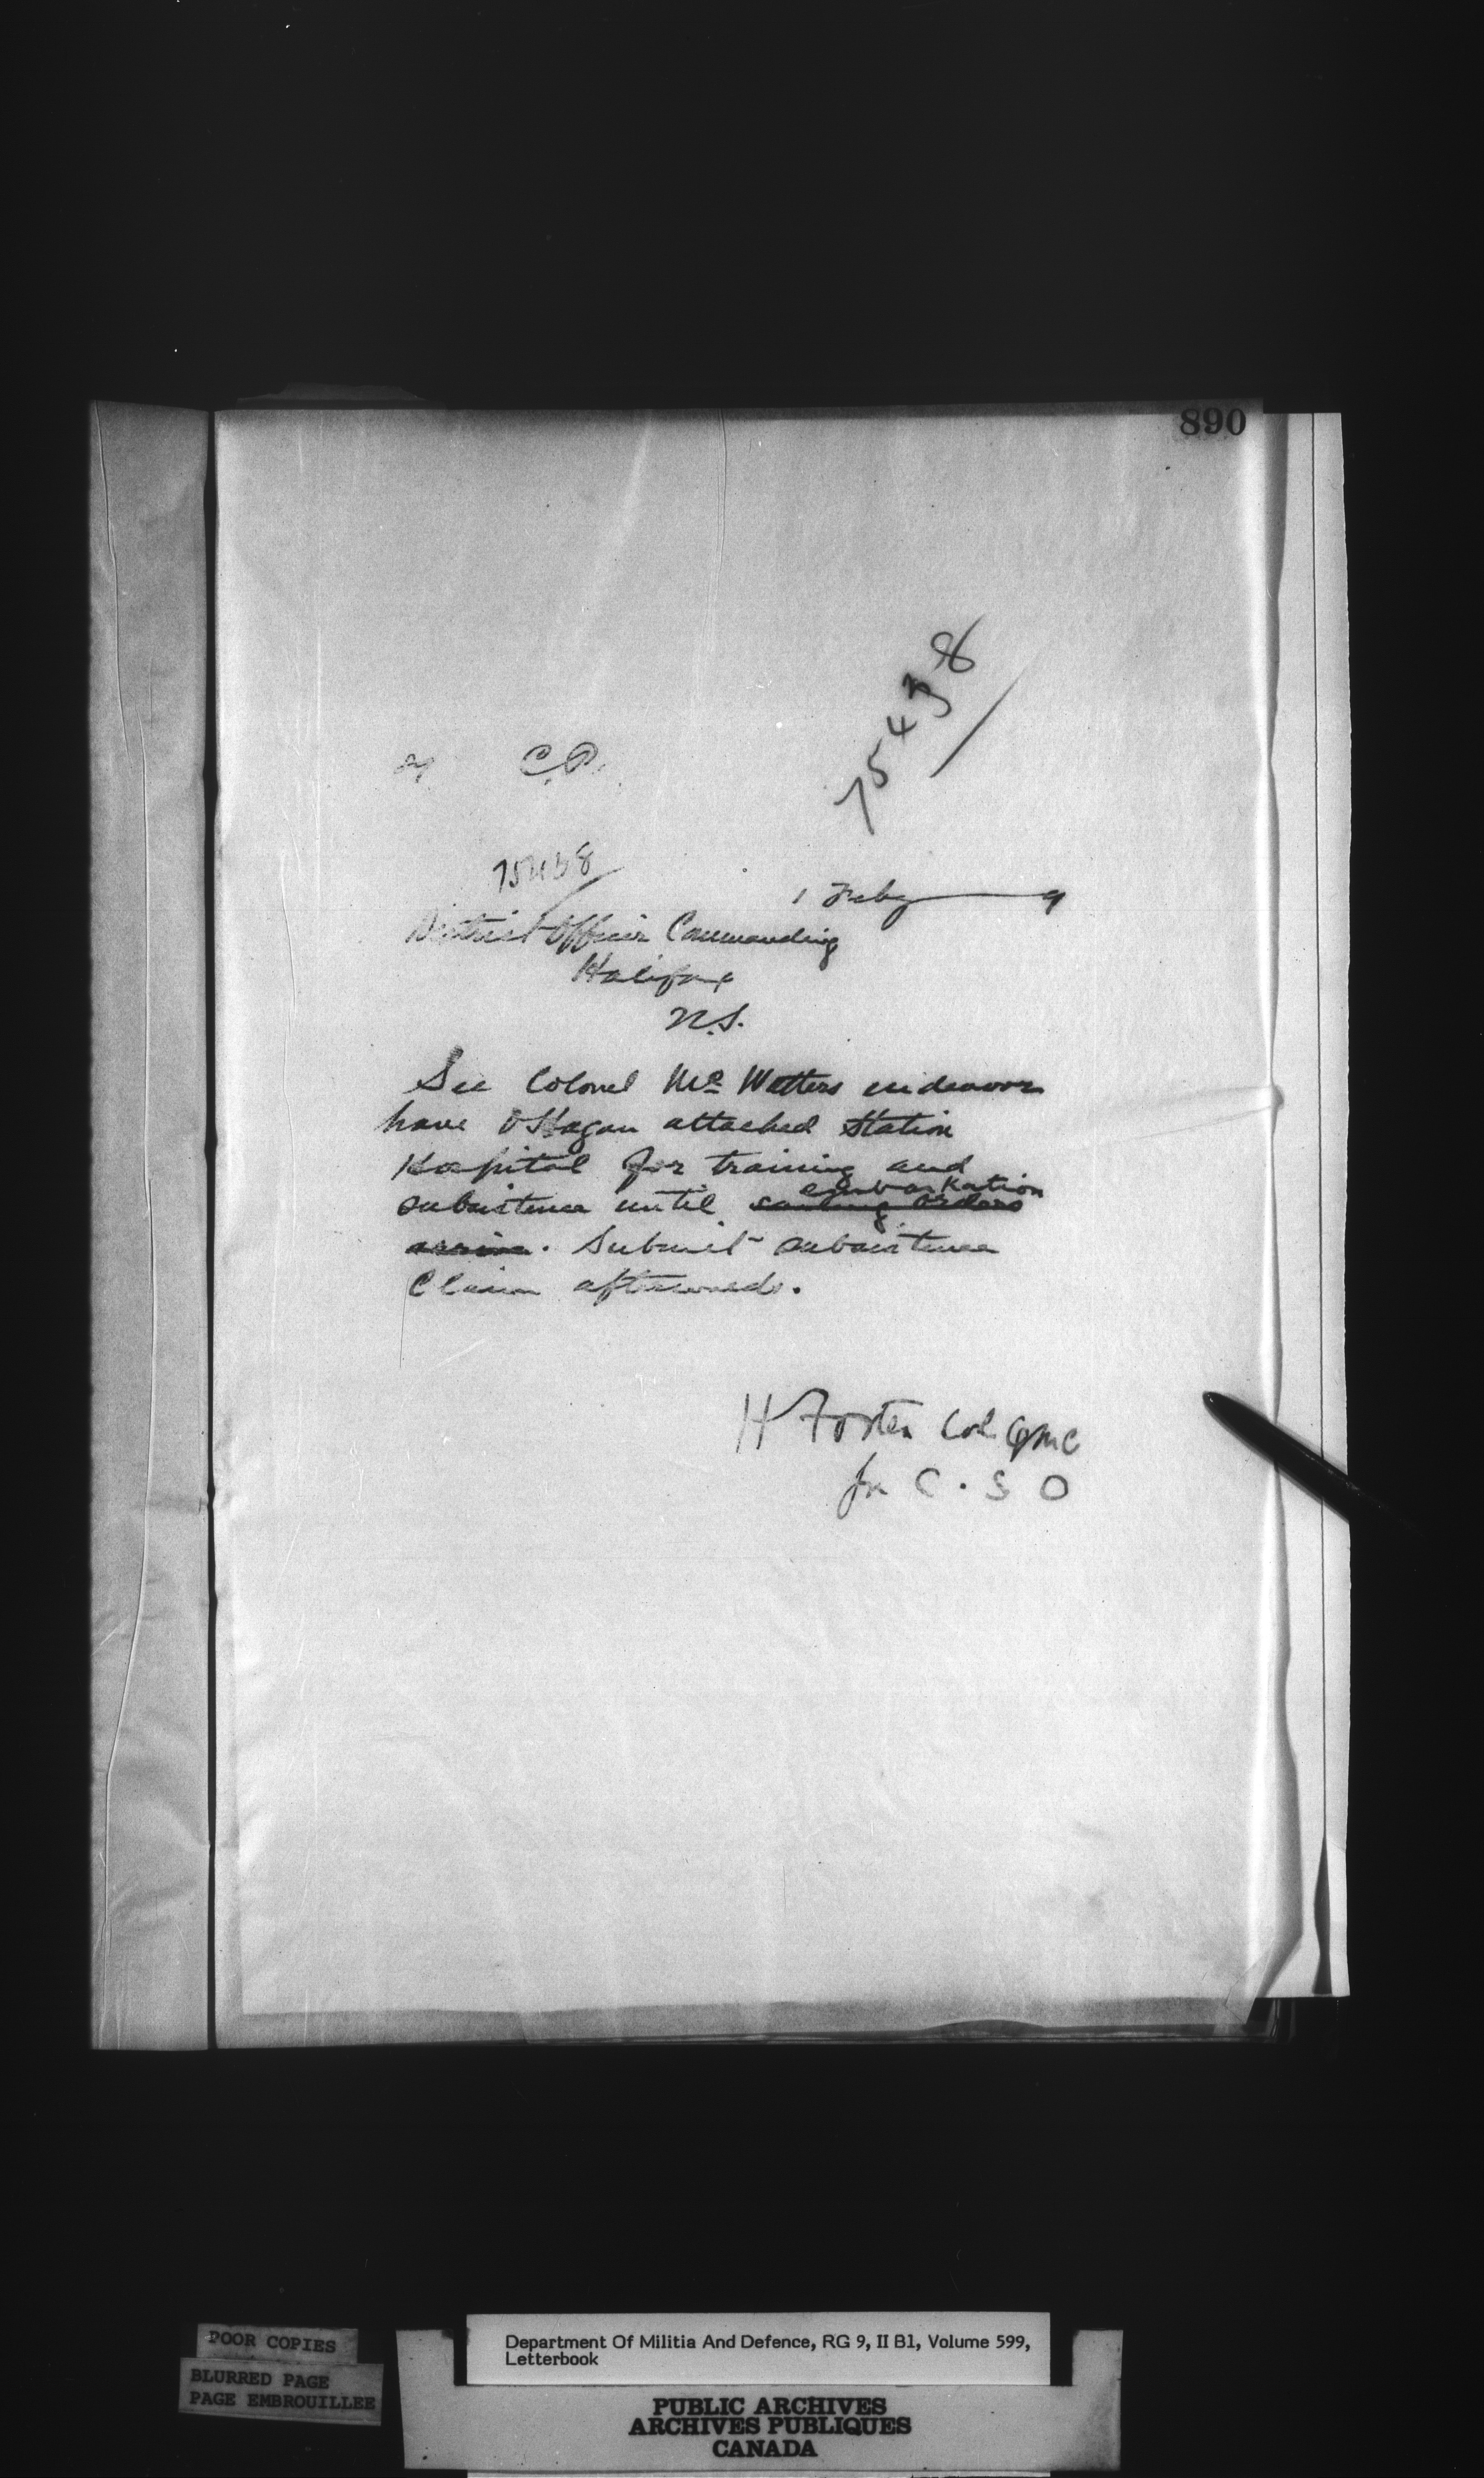 890
75438
C.P.
75438
1 Feby 9
District Officer Commanding
Halifax
N.S.
See Colonel Mc Watters endeavor
have O'Hagan attached Station
Hospital for training and
embarkation
subsistence until sailing orders
arrive. Submit subsistence
Claim afterwards.
H Foster Col QMG
for C.S O
POOR COPIES
BLURRED PAGE
PAGE EMBROUILLEE
Department Of Militia And Defence, RG 9, II B1, Volume 599,
Letterbook
PUBLIC ARCHIVES
ARCHIVES PUBLIQUES
CANADA